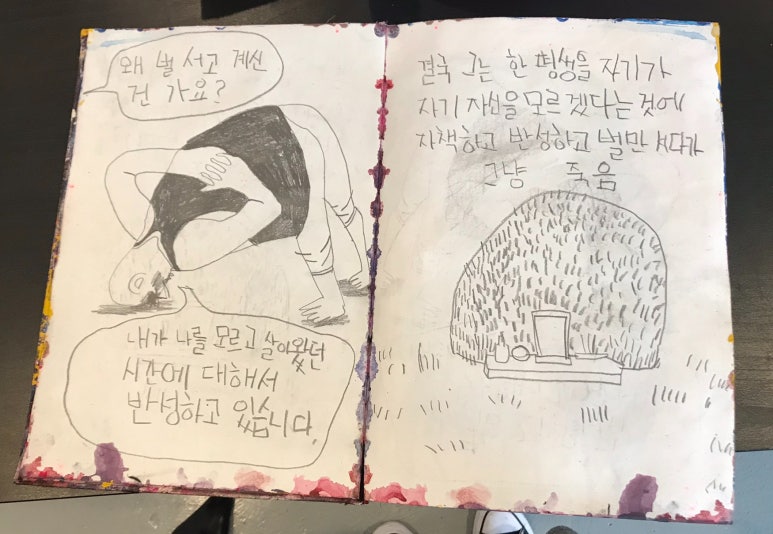 왜 벌 서고 계신
건 가요?
내가 나를 모르고 살아왔던
시간에 대해서
반성하고 있습니다.
결국 그는 한 평생을 자기가
자기 자신을 모르겠다는 것에
자책하고 반성하고 벌만 서다가
그냥 죽음